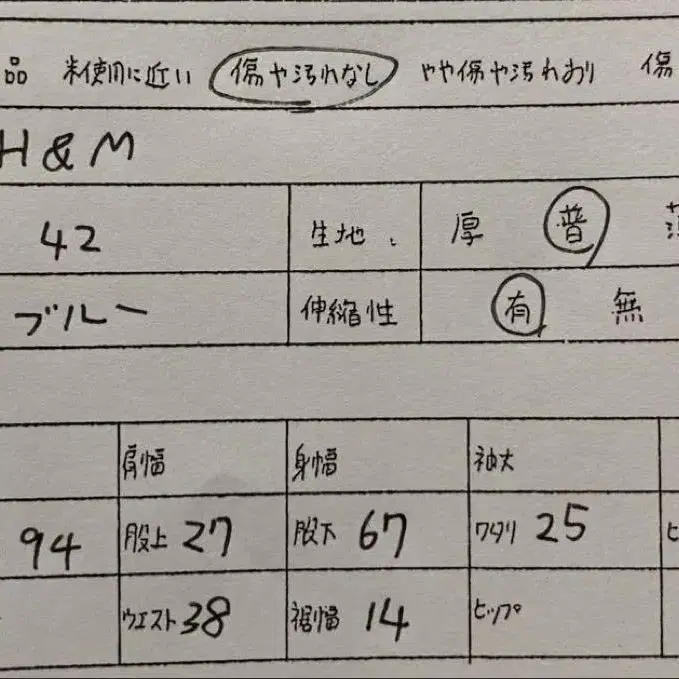 品 未使用に近い 傷や汚れなし やや傷や汚れあり 傷
H&M
42 生地 厚 普
ブルー 伸縮性 有 無
肩幅 身幅 袖丈
94 股上 27 股下 67 ワタリ 25 ヒ
ウエスト 38 裾幅 14 ヒップ